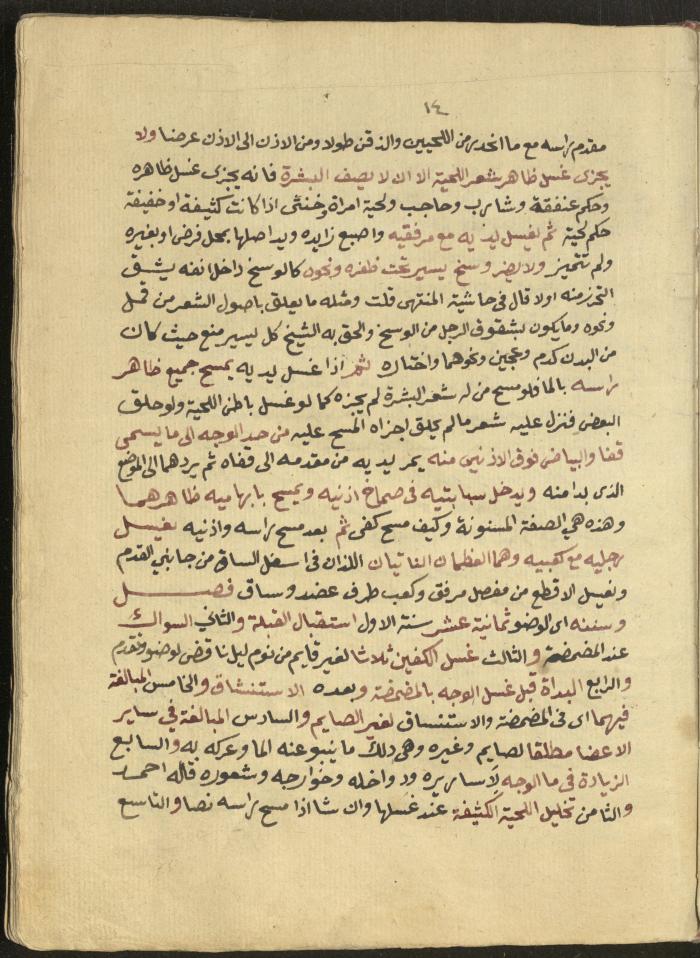 ١٤
مقدم راسه مع ما انحدر من اللحيين والذقن طولا ومن الاذن الى الاذن عرضا ولا
يجزى غسل ظاهر شعر اللحية الا ان لا يصف البشرة فانه يجزى غسل ظاهره
وحكم عنفقة وشارب وحاجب ولحية امراة وخنثى اذا كانت كثيفة او خفيفة
حكم لحية ثم يغسل يديه مع مرفقيه واصبع زايده ويد اصلها بمحل فرض او بغيره
ولم تتميز ولا يضر وسخ يسير تحت ظفره ونحوه كالوسخ داخل انفه يشق
التحرز منه اولا قال فى حاشية المنتهى قلت ومثله ما يعلق باصول الشعر من قمل
ونحوه وما يكون بشقوق الرجل من الوسخ والحق به الشيخ كل يسير منع حيث كان
من البدن كدم وعجين ونحوهما واختاره ثم اذا غسل يديه يمسح جميع ظاهر
راسه بالما فلو مسح من له شعر البشرة لم يجزه كما لو غسل باطن اللحية ولو حلق
البعض فنزل عليه شعر ما لم يحلق اجزاه المسح عليه من حد الوجه الى ما يسمى
قفا والبياض فوق الاذنين منه يمر يديه من مقدمه الى قفاه ثم يردهما الى الموضع
الذى بدا منه ويدخل سبابتيه فى صماخ اذنيه ويمسح بابهاميه ظاهرهما
وهذه هي الصفة المسنونة وكيف مسح كفى ثم بعد مسح راسه واذنيه يغسل
رجليه مع كعبيه وهما العظمان الناتيان اللذان فى اسفل الساق من جانبي القدم
ويغسل الاقطع من مفصل مرفق وكعب طرف عضد وساق فصل
وسننه اى الوضو ثمانية عشر سنة الاول استقبال القبلة والثاني السواك
عند المضمضة والثالث غسل الكفين ثلاثا لغير قايم من نوم ليل ناقض لوضو وتقدم
والرابع البداة قبل غسل الوجه بالمضمضة وبعده الاستنشاق والخامس المبالغة
فيهما اى فى المضمضة والاستنساق لغير الصايم والسادس المبالغة في ساير
الاعضا مطلقا لصايم وغيره وهى دلك ما ينبو عنه الما وعركه به والسابع
الزيادة فى ما الوجه لاساريره ودواخله وخوارجه وشعوره قاله احمد
والثامن تخليل اللحية الكثيفة عند غسلها وان شا اذا مسح راسه نصا والتاسع